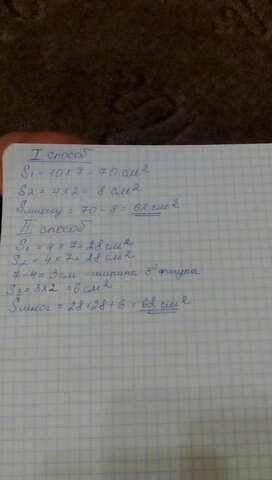 I способ
S1 = 10×7 = 70 см²
S2 = 4×2 = 8 см²
Sмногоу = 70 - 8 = 62 см²
II способ
S1 = 4×7 = 28 см²
S2 = 4×7 = 28 см²
7-4 = 3 см - ширина 3 фигуры
S3 = 3×2 = 6 см²
Sмног = 28+28+6 = 62 см²